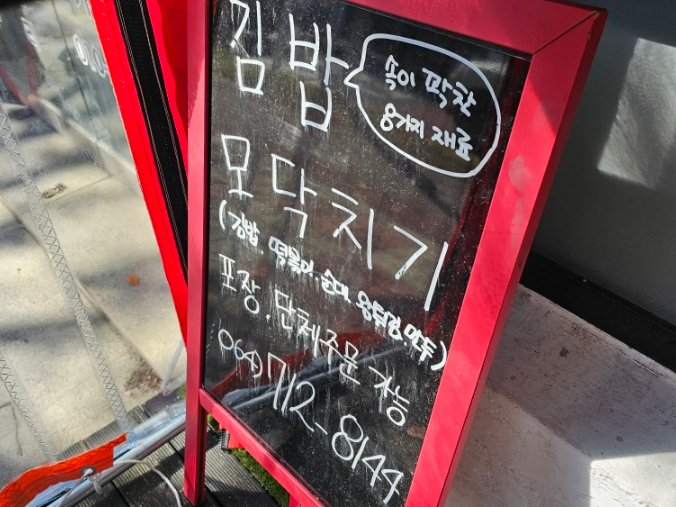 김밥
속이 꽉찬
8가지 재료
모닥치기
(김밥, 떡볶이, 순대, 왕튀김, 만두)
포장, 단체주문 가능
064)712-8144